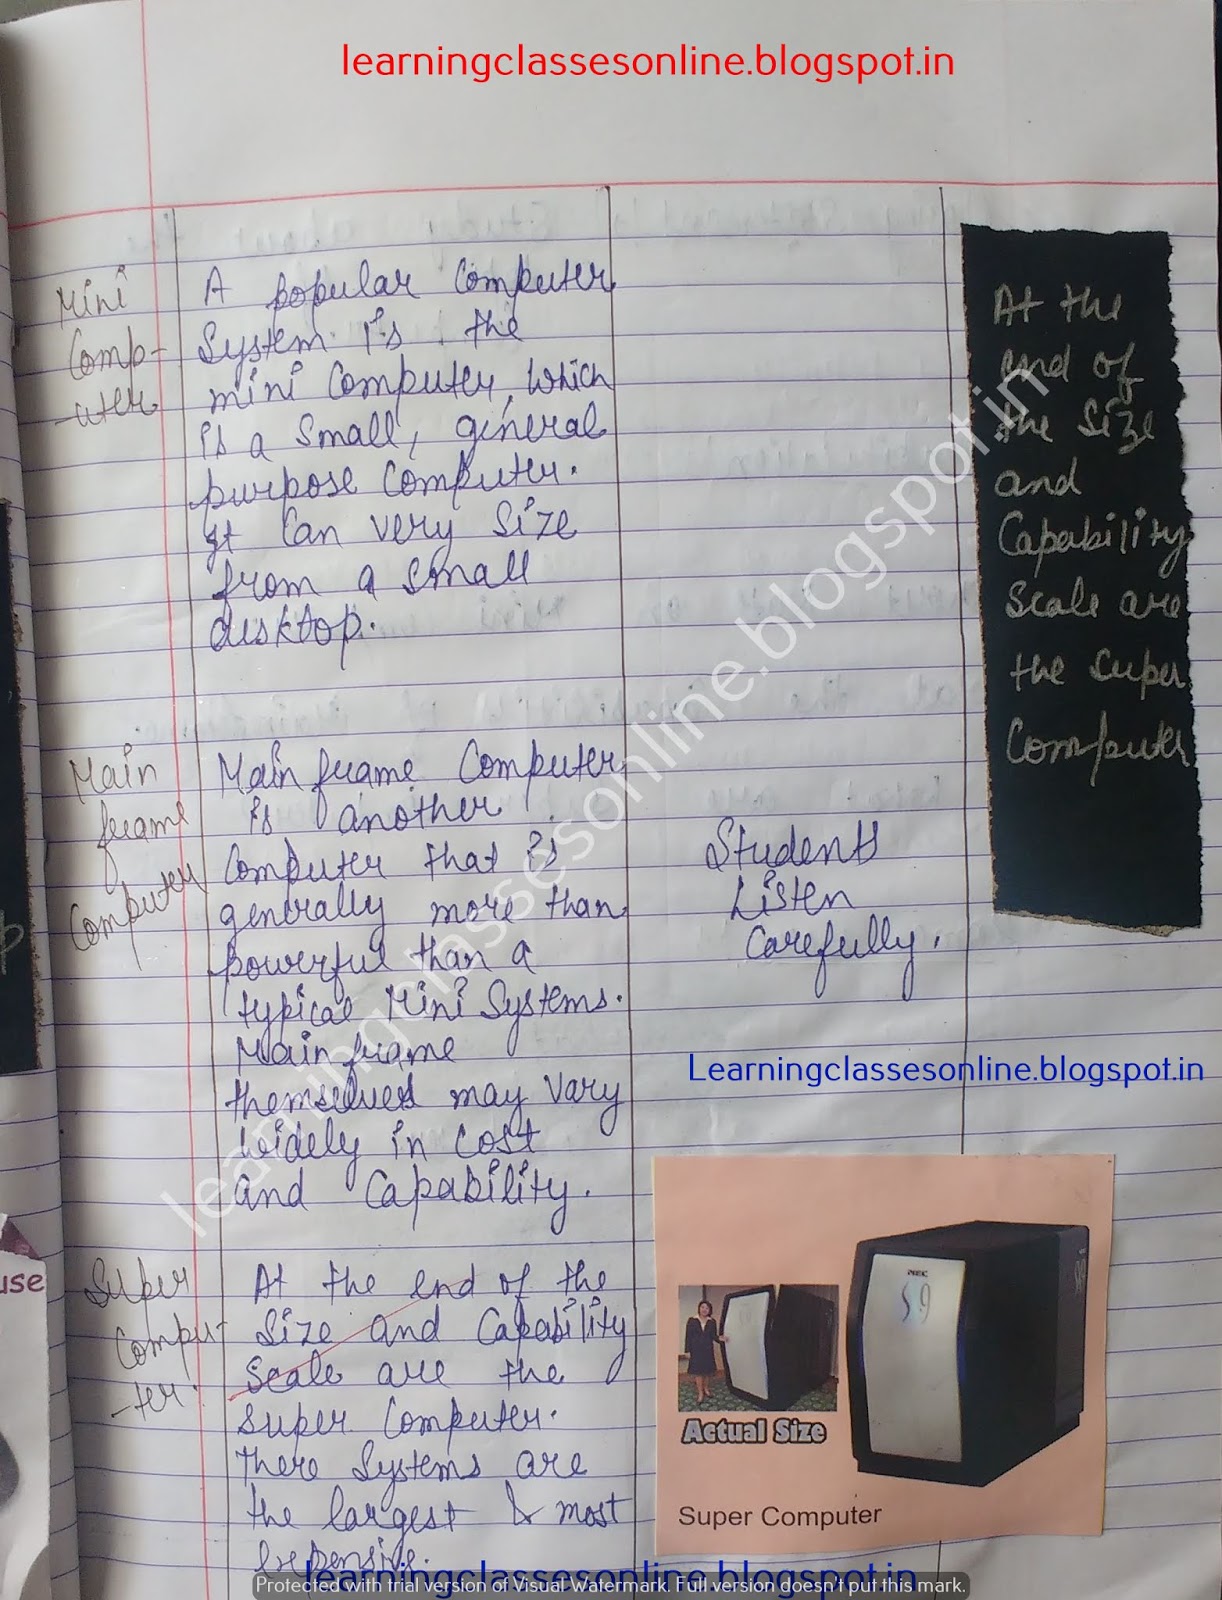 learningclassesonline.blogspot.in
Mini
Comp-
-uter
A popular Computer
System is the
mini Computer, which
is a Small, general
purpose Computer.
It Can very Size
from a small
desktop.
At the
end of
the Size
and
Capability
Scale are
the super
Computer
Main
frame
Computer
Main frame Computer
is another
Computer that is
generally more than
powerful than a
typical Mini Systems.
Main frame
themselves may vary
widely in cost
and Capability.
Students
Listen
Carefully.
Learningclassesonline.blogspot.in
learningclassesonline.blogspot.in
Super
Compu-
-ter.
At the end of the
Size and Capability
Scale are the
super Computer.
There Systems are
the largest & most
Expensive.
use
NEC
S9
Actual Size
Super Computer
learningclassesonline.blogspot.in
Protected with trial version of Visual Watermark. Full version doesn't put this mark.